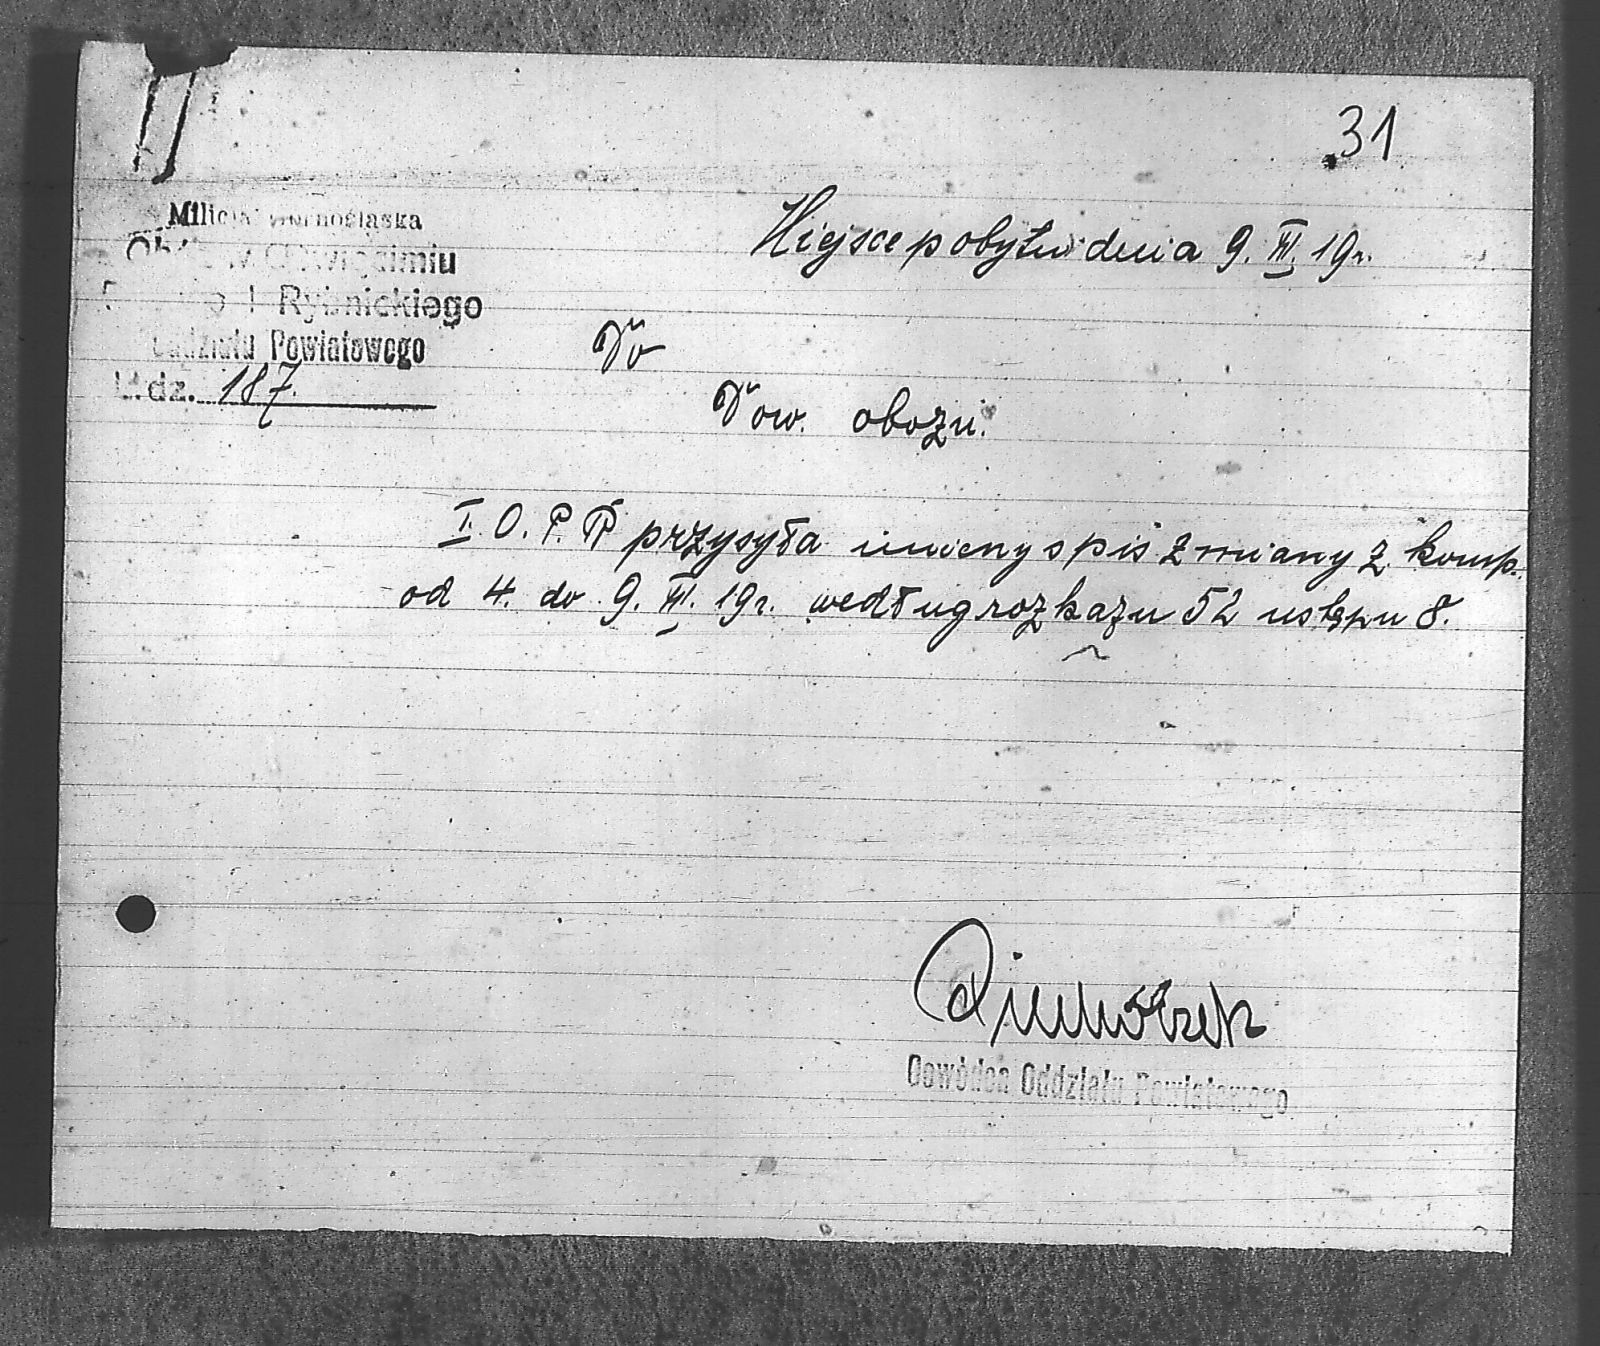 31
Milicja Górnośląska
Obóz w Oświęcimiu
Rybnickiego
Oddziału Powiatowego
L.dz. 187.
Miejsce pobytu dnia 9. III. 19r.
Do
Dow. obozu.
I. O. P. R przysyła imieny spis zmiany z komp.
od 4. do 9. III. 19r. według rozkazu 52 ustępu 8.
Dowódca Oddziału Powiatowego